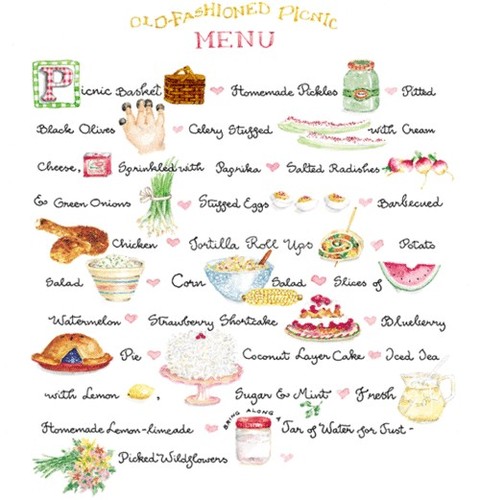 OLD-FASHIONED PICNIC
MENU
Picnic Basket Homemade Pickles Pitted
Black Olives Celery Stuffed with Cream
Cheese, Sprinkled with Paprika Salted Radishes
& Green Onions Stuffed Eggs Barbecued
Chicken Tortilla Roll Ups Potato
Salad Corn Salad Slices of
Watermelon Strawberry Shortcake Blueberry
Pie Coconut Layer Cake Iced Tea
with Lemon , Sugar & Mint Fresh
Homemade Lemon-limeade BRING ALONG A Jar of Water for Just-
Picked Wildflowers